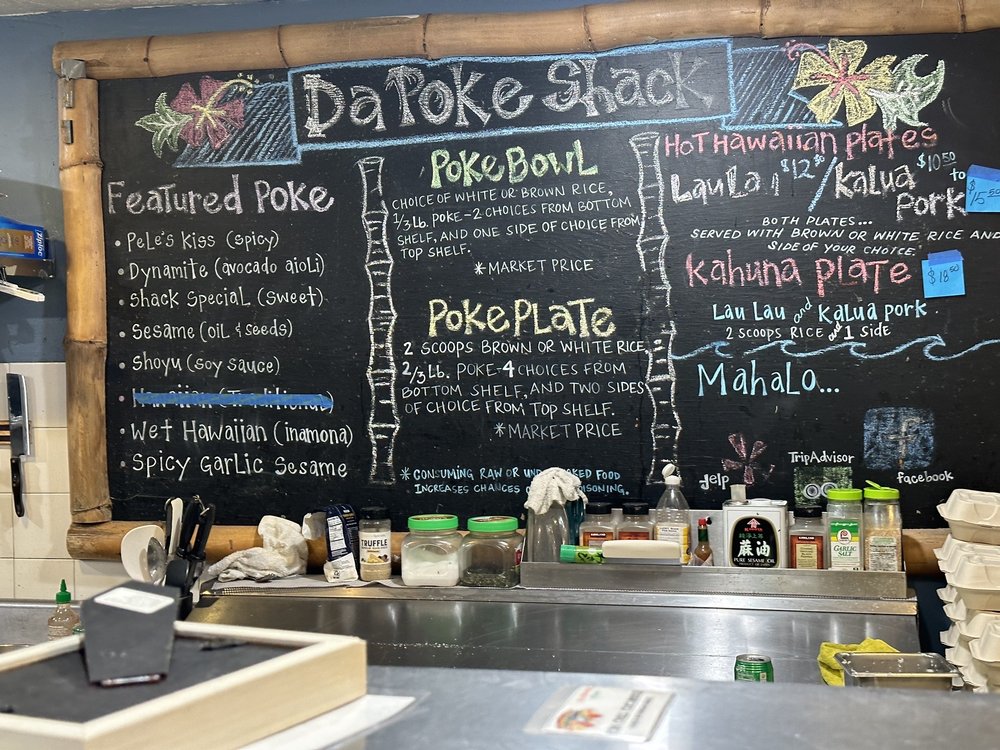 Da Poke Shack
Featured Poke
• Pele's Kiss (spicy)
• Dynamite (avocado aioli)
• Shack Special (sweet)
• Sesame (oil & seeds)
• Shoyu (soy sauce)
• Hawaiian (Traditional)
• Wet Hawaiian (inamona)
• Spicy Garlic Sesame
Poke Bowl
CHOICE OF WHITE OR BROWN RICE,
1/3 Lb. POKE-2 CHOICES FROM BOTTOM
SHELF, AND ONE SIDE OF CHOICE FROM
TOP SHELF.
*MARKET PRICE
Poke PLATE
2 SCOOPS BROWN OR WHITE RICE
2/3 Lb. POKE-4 CHOICES FROM
BOTTOM SHELF, AND TWO SIDES
OF CHOICE FROM TOP SHELF.
*MARKET PRICE
* CONSUMING RAW OR UNDERCOOKED FOOD
INCREASES CHANCES OF POISONING.
HOT Hawaiian Plates
Lau Lau $12.50 / Kalua Pork $10.50 to
$15.50
BOTH PLATES...
SERVED WITH BROWN OR WHITE RICE AND
SIDE OF YOUR CHOICE.
Kahuna Plate
$18.50
Lau Lau and Kalua Pork
2 SCOOPS RICE and 1 SIDE
Mahalo...
Yelp
TripAdvisor
facebook
Ziploc
TRUFFLE
麻油
PURE SESAME OIL
GARLIC
SALT